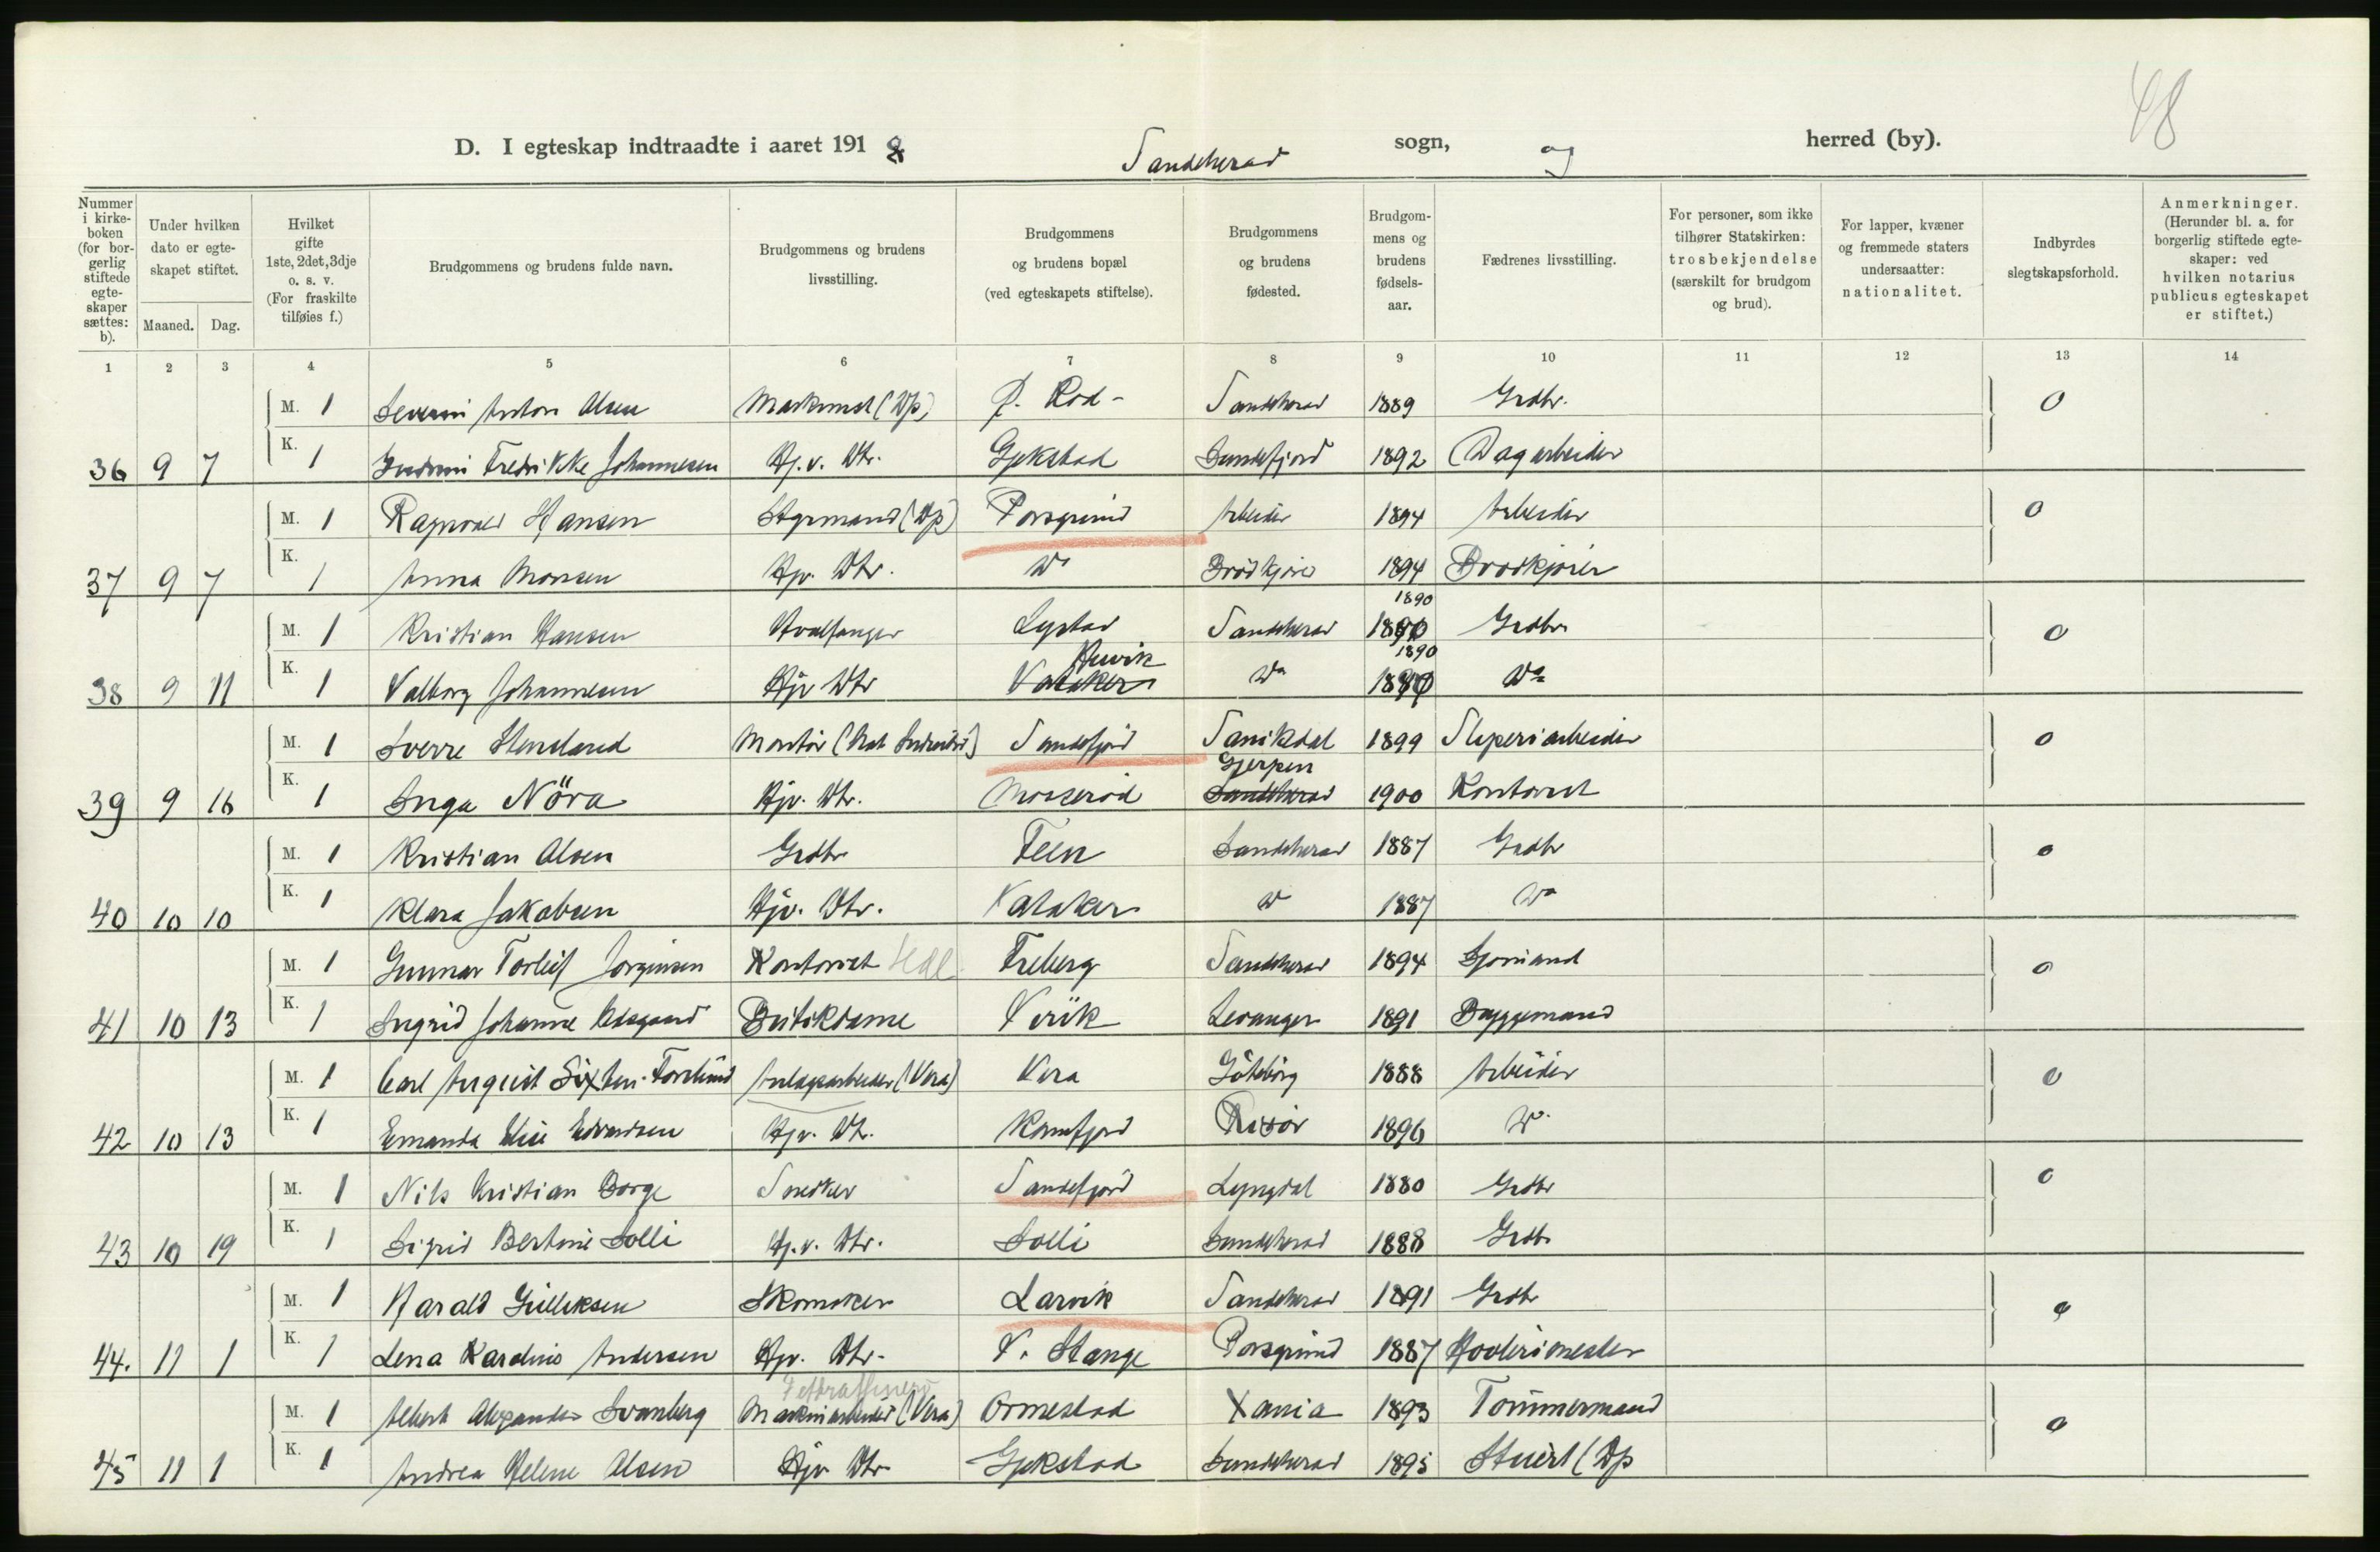 48
D. I egteskap indtraadte i aaret 1918 Sandeherad sogn, og herred (by).
Nummer i kirke-boken (for bor-gerlig stiftede egte-skaper sættes: b).
Under hvilken dato er egte-skapet stiftet.
Maaned. Dag.
Hvilket gifte 1ste, 2det, 3dje o. s. v. (For fraskilte tilføies f.)
Brudgommens og brudens fulde navn.
Brudgommens og brudens livsstilling.
Brudgommens og brudens bopæl (ved egteskapets stiftelse).
Brudgommens og brudens fødested.
Brudgom-mens og brudens fødsels-aar.
Fædrenes livsstilling.
For personer, som ikke tilhører Statskirken: trosbekjendelse (særskilt for brudgom og brud).
For lapper, kvæner og fremmede staters undersaatter: nationalitet.
Indbyrdes slegtskapsforhold.
Anmerkninger. (Herunder bl. a. for borgerlig stiftede egte-skaper: ved hvilken notarius publicus egteskapet er stiftet.)
1 2 3 4 5 6 7 8 9 10 11 12 13 14
M. 1 Anton Olsen Maskinist (Dp) Rød - Sandeherad 1889 Grdbr. 0
36 9 7 K. 1 Fredrikke Johannesen Hj. v. Dtr. Gjekstad Sandefjord 1892 Dagarbeider
M. 1 Ragnvald Hansen Styrmand (Dp) Porsgrund Arbeider 1894 Arbeider 0
37 9 7 K. 1 Anna Monsen Hjv. Dtr. Do Brødkjører 1894 Brødkjører
1890
M. 1 Kristian Hansen Hvalfanger Lystad Sandeherad 1890 Grdbr 0
Huvik 1890
38 9 11 K. 1 Valborg Johannesen Hjv Dtr Vataker Do 1890 Do
M. 1 Sverre Stensland Montör Sandefjord Sanikdal 1899 Sliperiarbeider 0
Gjerpen
39 9 16 K. 1 Inga Nöra Hjv. Dtr. Mosserød Sandeherad 1900 Kontorist
M. 1 Kristian Olsen Grdbr Feen Sandeherad 1887 Grdbr 0
40 10 10 K. 1 Klara Jakobsen Hjv. Dtr. Vataker Do 1887 Do
M. 1 Gunnar Torleif Jørginsen Kontorist Hdl Freberg Sandeherad 1894 Sjømand 0
41 10 13 K. 1 Ingrid Johanne Butikdame Virik Levanger 1891 Byggemand
M. 1 Carl August Sixten Forslund (Vera) Vera Göteborg 1888 Arbeider 0
42 10 13 K. 1 Emanda Elise Edvardsen Hjv. Dt. Kamfjord Risør 1896 Do
M. 1 Nils Kristian Borge Snedker Sandefjord Lyngdal 1880 Grdbr 0
43 10 19 K. 1 Sigrid Bertine Solli Hj. v. Dtr. Solli Sandeherad 1888 Grdb.
M. 1 Harald Gulliksen Skomaker Larvik Sandeherad 1891 Grdbr 0
44. 11 1 K. 1 Lena Karoline Andersen Hjv. Dtr. V. Stange Porsgrund 1887 Høvlerimester
Fettraffineri
M. 1 Albert Alexander Svanberg Maskinarbeider (Vera) Ormestad Xania 1893 Tömmermand 0
45 11 1 K. 1 Andrea Helene Olsen Hjv Dtr Gjekstad Sandeherad 1895 Stuert (Dp